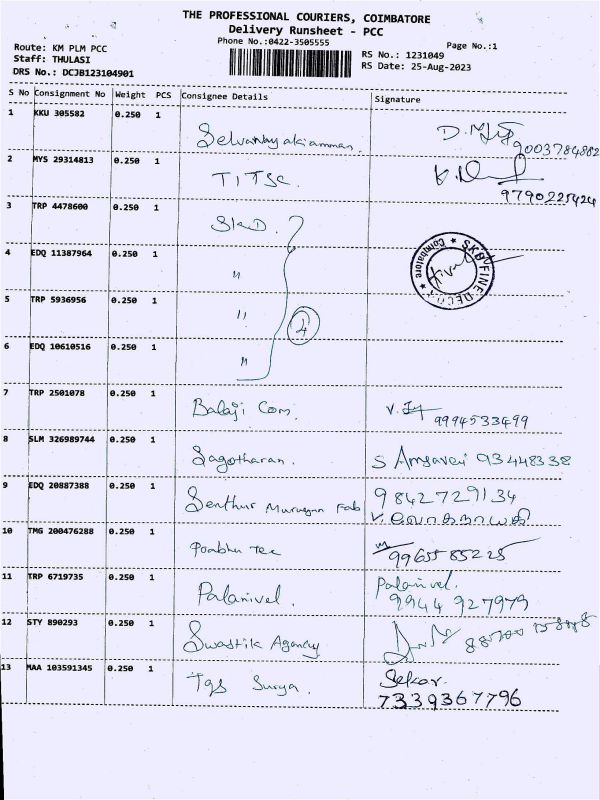 THE PROFESSIONAL COURIERS, COIMBATORE
Delivery Runsheet - PCC
Phone No.:0422-3505555
Page No.:1
Route: KM PLM PCC
Staff: THULASI
DRS No.: DCJB123104901
RS No.: 1231049
RS Date: 25-Aug-2023
S No Consignment No Weight PCS Consignee Details Signature
1 KKU 305582 0.250 1 Selvanayakiamman 9003784882
2 MYS 29314813 0.250 1 TITSC 9790225424
3 TRP 4478600 0.250 1 SKD
4 EDQ 11387964 0.250 1 " SKD FINE DECOR Coimbatore
5 TRP 5936956 0.250 1 " 4
6 EDQ 10610516 0.250 1 "
7 TRP 2501078 0.250 1 Balaji Com. 9994533499
8 SLM 326989744 0.250 1 Sagotharan. S Amsaveni 93448338
9 EDQ 20887388 0.250 1 Senthur Murugan Fab 9842729134
V. லோகநாயகி
10 TMG 200476288 0.250 1 Prabhu Tex 9965585225
11 TRP 6719735 0.250 1 Palanivel. Palanivel.
9944 927979
12 STY 890293 0.250 1 Swastik Agency
13 MAA 103591345 0.250 1 Tgs Surya. Sekar.
7339367796